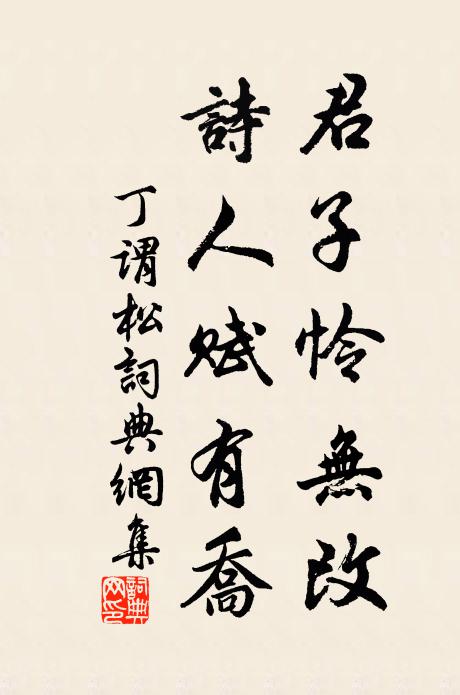 君子怜無改
詩人赋有喬
丁謂松詞典網集
詞典網印